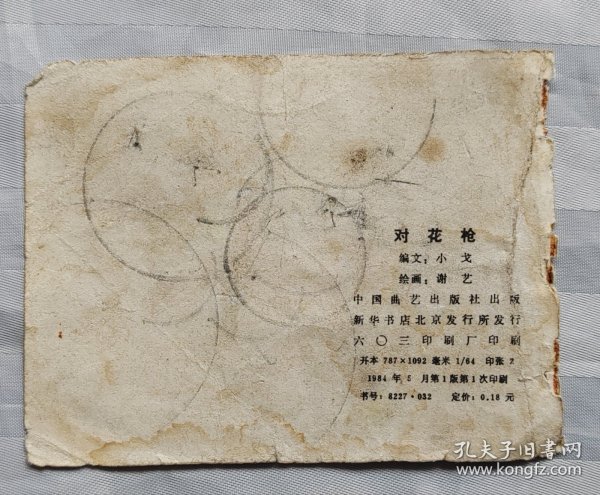 对花枪
编文：小戈
绘画：谢艺
中国曲艺出版社出版
新华书店北京发行所发行
六〇三印刷厂印刷
开本 787×1092 毫米 1/64 印张 2
1984 年 5 月第1版第1次印刷
书号：8227·032 定价：0.18 元
孔夫子旧书网
www.kongfz.com